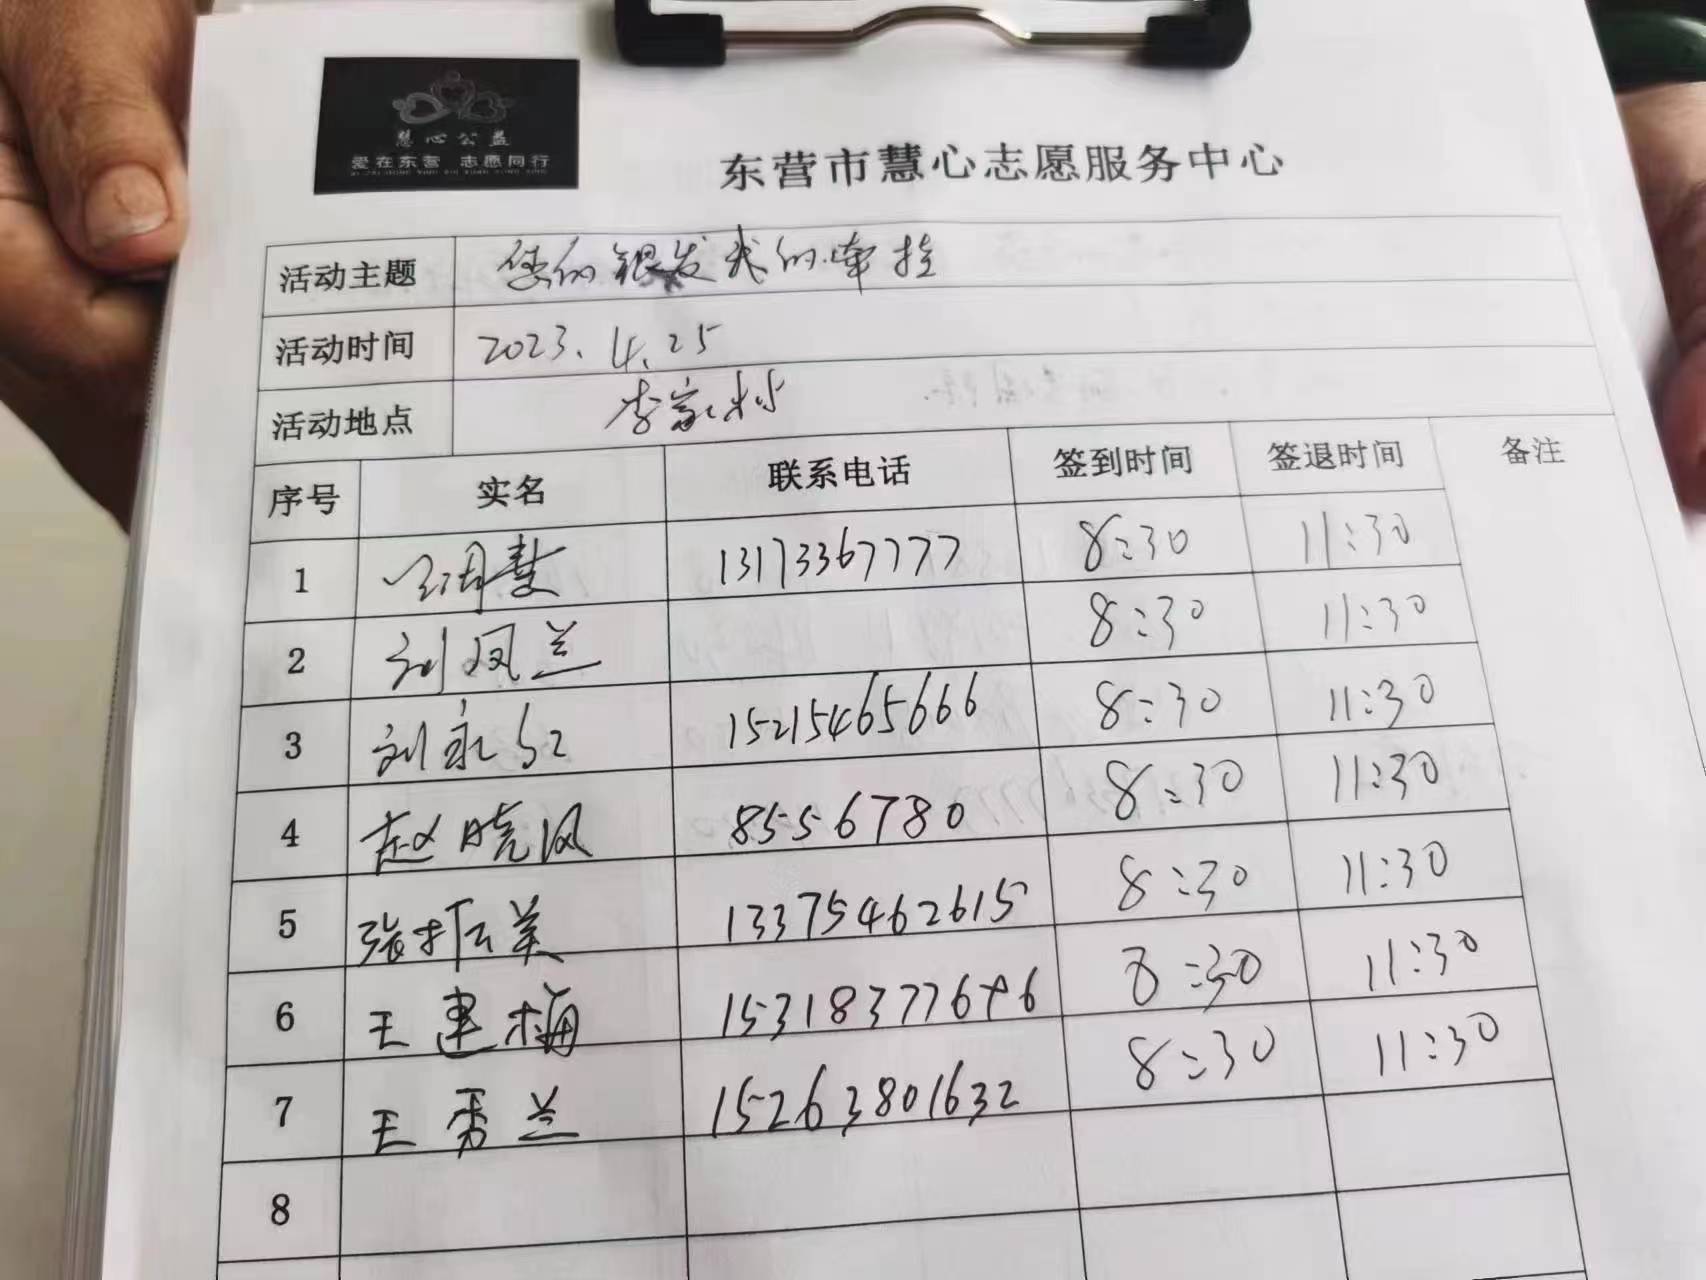 慧心公益
爱在东营 志愿同行
东营市慧心志愿服务中心
活动主题 您的银发我的牵挂
活动时间 2023.4.25
活动地点 李家村
序号 实名 联系电话 签到时间 签退时间 备注
1 13173367777 8:30 11:30
2 刘凤兰 8:30 11:30
3 刘永红 15215465666 8:30 11:30
4 赵晓风 8556780 8:30 11:30
5 张振英 13375462615 8:30 11:30
6 王建梅 8:30 11:30
7 王秀兰 15263801632 8:30 11:30
8